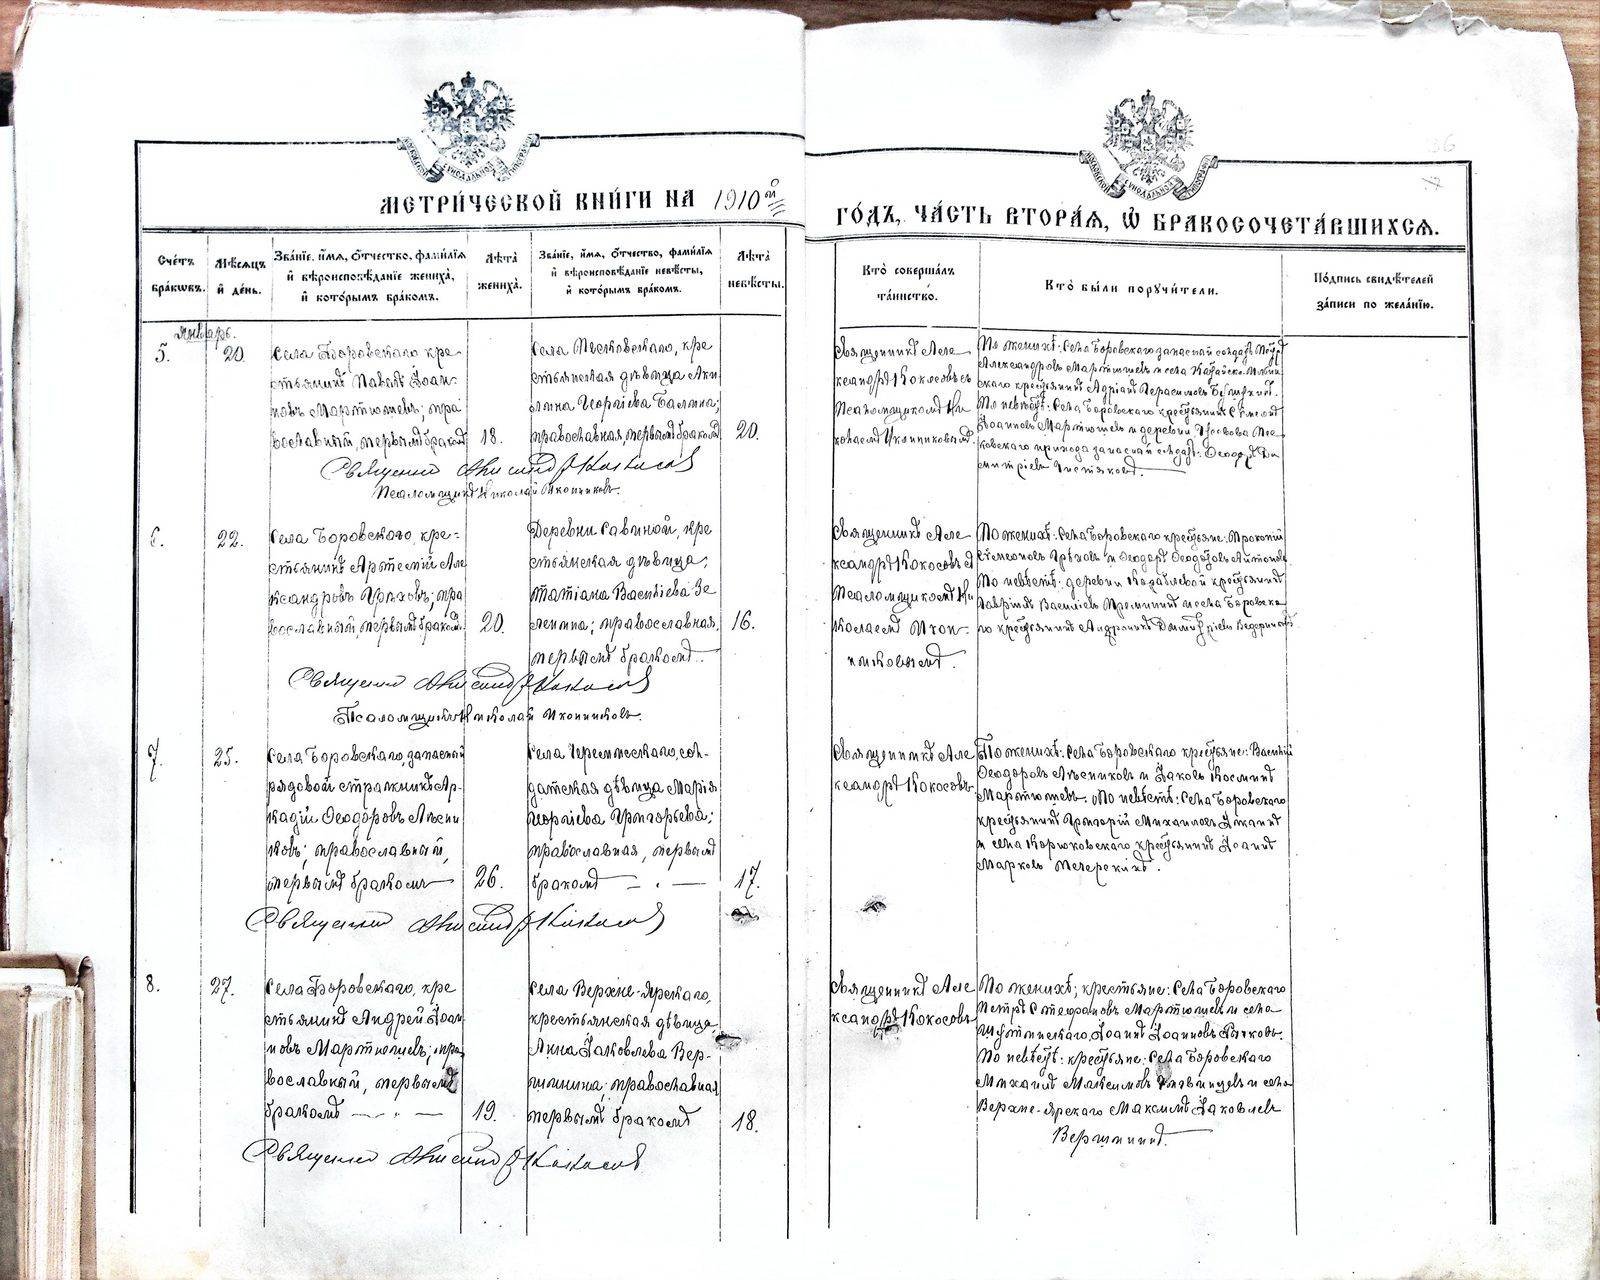 МЕТРИ́ЧЕСКОЙ КНИ́ГИ НА 1910ой
ГО́ДЪ, ЧА́СТЬ ВТОРА́Я, Ѡ БРАКОСОЧЕТА́ВШИХСЯ.
36
Сче́тъ бра́кѡвъ.
Мѣ́сяцъ и де́нь.
Зва́нїе, и́мя, о́тчество, фами́лїя и вѣроисповѣ́данїе жениха́, и кото́рымъ бра́комъ.
Лѣ́та жениха́.
Зва́нїе, и́мя, о́тчество, фами́лїя и вѣроисповѣ́данїе невѣ́сты, и кото́рымъ бра́комъ.
Лѣ́та невѣ́сты.
Кто̀ соверша́лъ та́инство.
Кто̀ бы́ли поручи́тели.
По́дпись свидѣ́телей за́писи по жела́нїю.
Январь.
5.
20.
Села Боровскаго, кре
стьянинъ Павелъ Іоан-
новъ Мартюшевъ; пра
вославный, первымъ бракомъ
18.
Села Песковскаго, кре
стьянская дѣвица Аки
лина Георгіева Балина;
православная, первымъ бракомъ
20.
Священникъ Але
ксандръ Кокосовъ съ
Псаломщикомъ Ни
колаемъ Иконниковымъ.
По женихѣ: Села Боровскаго запасный солдатъ Петръ
Александровъ Мартюшевъ и села
скаго крестьянинъ Адріанъ Герасимовъ
По невѣстѣ: Села Боровскаго крестьянинъ Симеонъ
Іоанновъ Мартюшевъ и деревни
ковскаго прихода запасный солдатъ: Ѳеодоръ Ди
митріевъ Чистяковъ.
Священникъ Александръ Кокосовъ
Псаломщикъ Николай Иконниковъ.
6.
22.
Села Боровскаго, кре-
стьянинъ Артемій Але
ксандровъ Грѣховъ; пра
вославный, первымъ бракомъ
20.
Деревни Савиной, кре
стьянская дѣвица,
Татіана Васильева Зе
ленина; православная,
первымъ бракомъ.
16.
Священникъ Але
ксандръ Кокосовъ съ
Псаломщикомъ Ни
колаемъ Икон-
никовымъ.
По женихѣ: Села Боровскаго крестьяне: Прокопій
Симеоновъ Грѣховъ и Ѳеодоръ Ѳеодоровъ
По невѣстѣ: деревни крестьянинъ
Гавріилъ Васильевъ и села Боровска
го крестьянинъ Андроникъ Димитріевъ
Священникъ Александръ Кокосовъ
Псаломщикъ Николай Иконниковъ.
7.
25.
Села Боровскаго, запасный
рядовой стражникъ Ар-
кадій Ѳеодоровъ Лѣсни
ковъ; православный,
первымъ бракомъ
26.
Села Черемисскаго, сол-
датская дѣвица Марія
Георгіева Григорьева;
православная, первымъ
бракомъ
17.
Священникъ Але
ксандръ Кокосовъ
По женихѣ: Села Боровскаго крестьяне: Василій
Ѳеодоровъ Лѣсниковъ и Іаковъ Косминъ
Мартюшевъ. По невѣстѣ: Села Боровскаго
крестьянинъ Григорій Михаиловъ
и села Корюковскаго крестьянинъ Іоаннъ
Марковъ Печеркинъ.
Священникъ Александръ Кокосовъ
8.
27.
Села Боровскаго, кре
стьянинъ Андрей Іоан
новъ Мартюшевъ; пра
вославный, первымъ
бракомъ
19.
Села Верхне-Ярскаго,
крестьянская дѣвица,
Анна Іаковлева Вер-
шинина; православная
первымъ бракомъ
18.
Священникъ Але
ксандръ Кокосовъ
По женихѣ; крестьяне: Села Боровскаго
Петръ Стефановъ Мартюшевъ и села
Іоаннъ Іоанновъ
По невѣстѣ: крестьяне: Села Боровскаго
Михаилъ Максимовъ и села
Верхне-Ярскаго Максимъ Іаковлевъ
Вершининъ.
Священникъ Александръ Кокосовъ